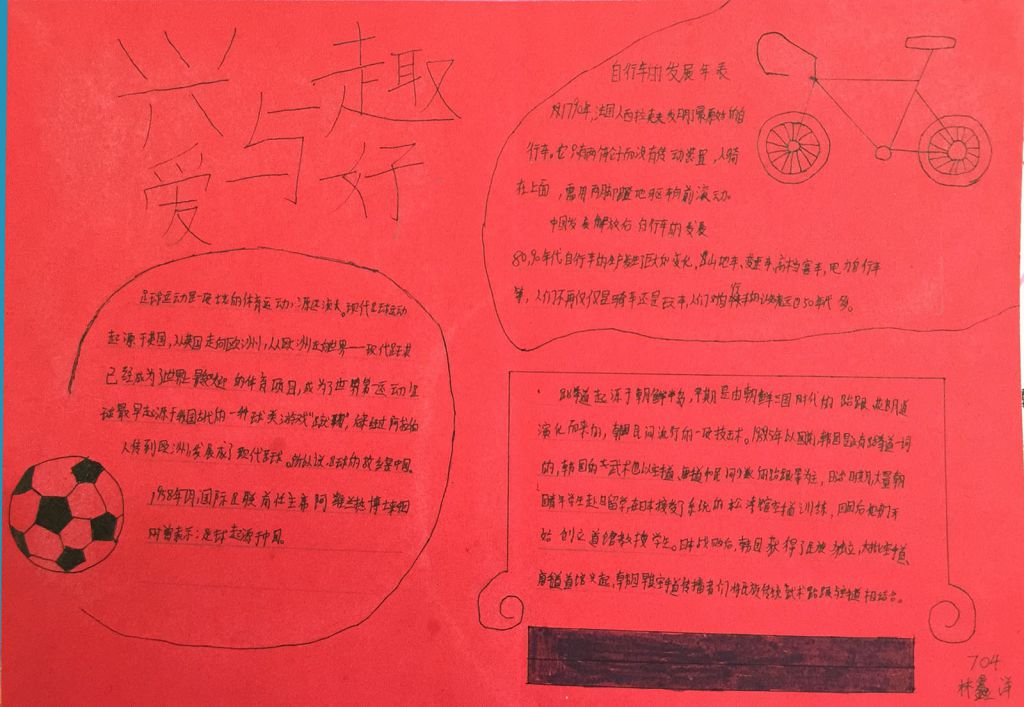 兴趣
与
爱好
自行车的发展年表
1790年,法国人西拉克发明了最原始的自
行车。它只有两个轮而没有传动装置,人骑
在上面,需用两脚蹬地驱车向前滚动。
中国发展解放后自行车的发展
80,90年代自行车的生产发生了巨大的变化,山地车、变速车、电力自行车
等,人们不再仅仅是骑车还是玩车,人们对自行车的认识远远超过50年代
足球运动是一项古老的体育运动,源远流长。现代足球运动
起源于英国,从英国走向欧洲,从欧洲走向世界——现代足球
已经成为了世界最发达的体育项目,成为了世界第一运动
最早起源于我国古代的一种球类游戏“蹴鞠”,经过阿拉伯
人传到欧洲,发展成了现代足球。所以说足球的故乡是中国。
1958年7月,国际足联前任主席阿维兰热博士来中国
时曾表示:足球起源于中国。
跆拳道起源于朝鲜半岛,早期是由朝鲜三国时代的跆跟、花郎道
演化而来的,朝国民间流行的一项技击术。1955年以前,韩国没有跆拳道一词
的,韩国的
青年学生赴日留学,在日本接受了系统的松涛馆空手道训练,回国后他们开
始创立道馆教授学生。日本战败后,韩国获得了民族独立,大批空手道、
唐手道道馆兴起,韩国早期空手道传播者们将民族传统武术跆跟与空手道相结合。
704
林鑫洋